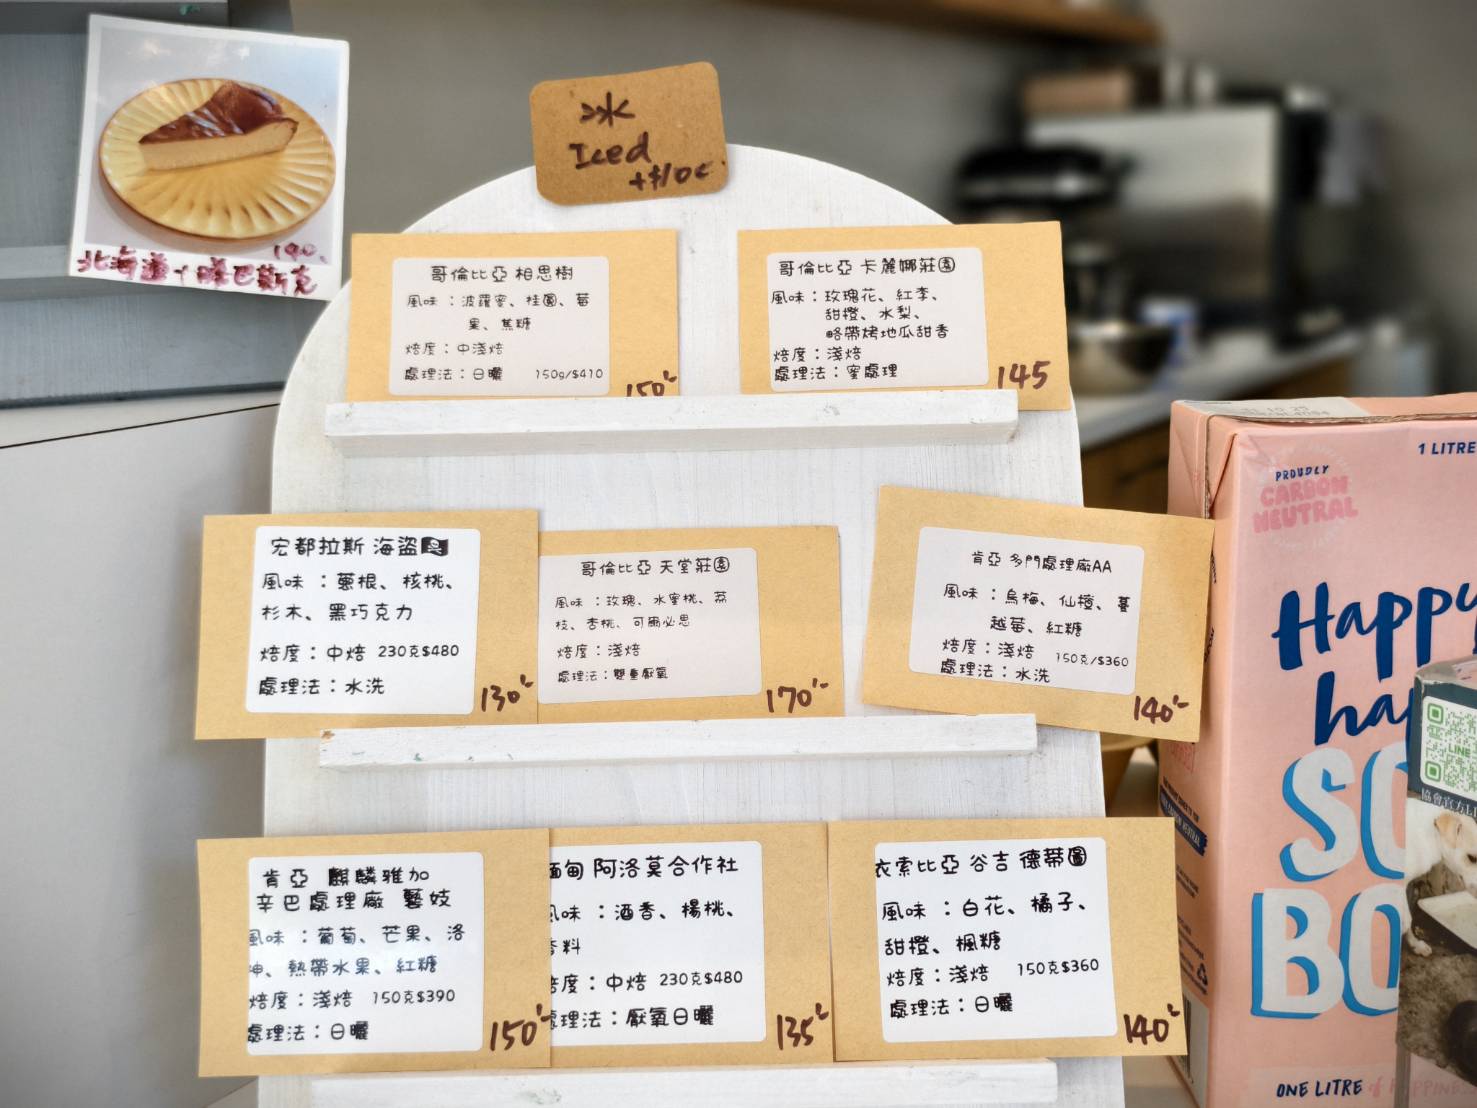 冰
Iced
+$10元
190.
北海道
巴斯克
哥倫比亞 相思樹
風味：波蘿蜜、桂圓、莓
果、焦糖
焙度：中淺焙
處理法：日曬 150g/$410
150
哥倫比亞 卡麗娜莊園
風味：玫瑰花、紅李、
甜橙、水梨、
略帶烤地瓜甜香
焙度：淺焙
處理法：蜜處理
145
宏都拉斯 海盜
風味：蔥根、核桃、
杉木、黑巧克力
焙度：中焙 230克$480
處理法：水洗
130
哥倫比亞 天堂莊園
風味：玫瑰、水蜜桃、荔
枝、杏桃、可爾必思
焙度：淺焙
處理法：雙重厭氧
170
肯亞 多門處理廠AA
風味：烏梅、仙楂、蔓
越莓、紅糖
焙度：淺焙 150克/$360
處理法：水洗
140
肯亞 麒麟雅加
辛巴處理廠 藝妓
風味：葡萄、芒果、洛
神、熱帶水果、紅糖
焙度：淺焙 150克$390
處理法：日曬
150
緬甸 阿洛莫合作社
風味：酒香、楊桃、
香料
焙度：中焙 230克$480
處理法：厭氧日曬
135
衣索比亞 谷吉 德蒂圖
風味：白花、橘子、
甜橙、楓糖
焙度：淺焙 150克$360
處理法：日曬
140
1 LITRE
PROUDLY
CARBON
NEUTRAL
Happy
ha
SO
BO
ONE LITRE of HAPPINESS
LINE
協會官方L